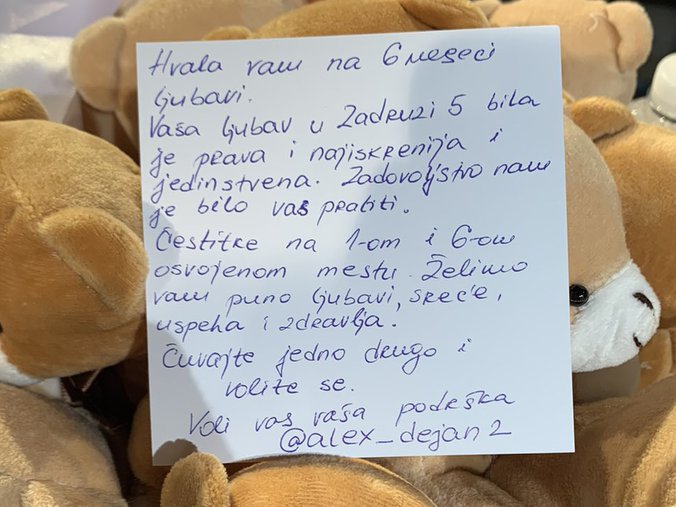 Hvala vam na 6 meseci
ljubavi.
Vaša ljubav u Zadruzi 5 bila
je prava i najiskrenija i
jedinstvena. Zadovoljstvo nam
je bilo vas pratiti.
Čestitke na 1-om i 6-om
osvojenom mestu. Želimo
vam puno ljubavi, sreće,
uspeha i zdravlja.
Čuvajte jedno drugo i
volite se.
Voli vas vaša podrška
@alex_dejan2